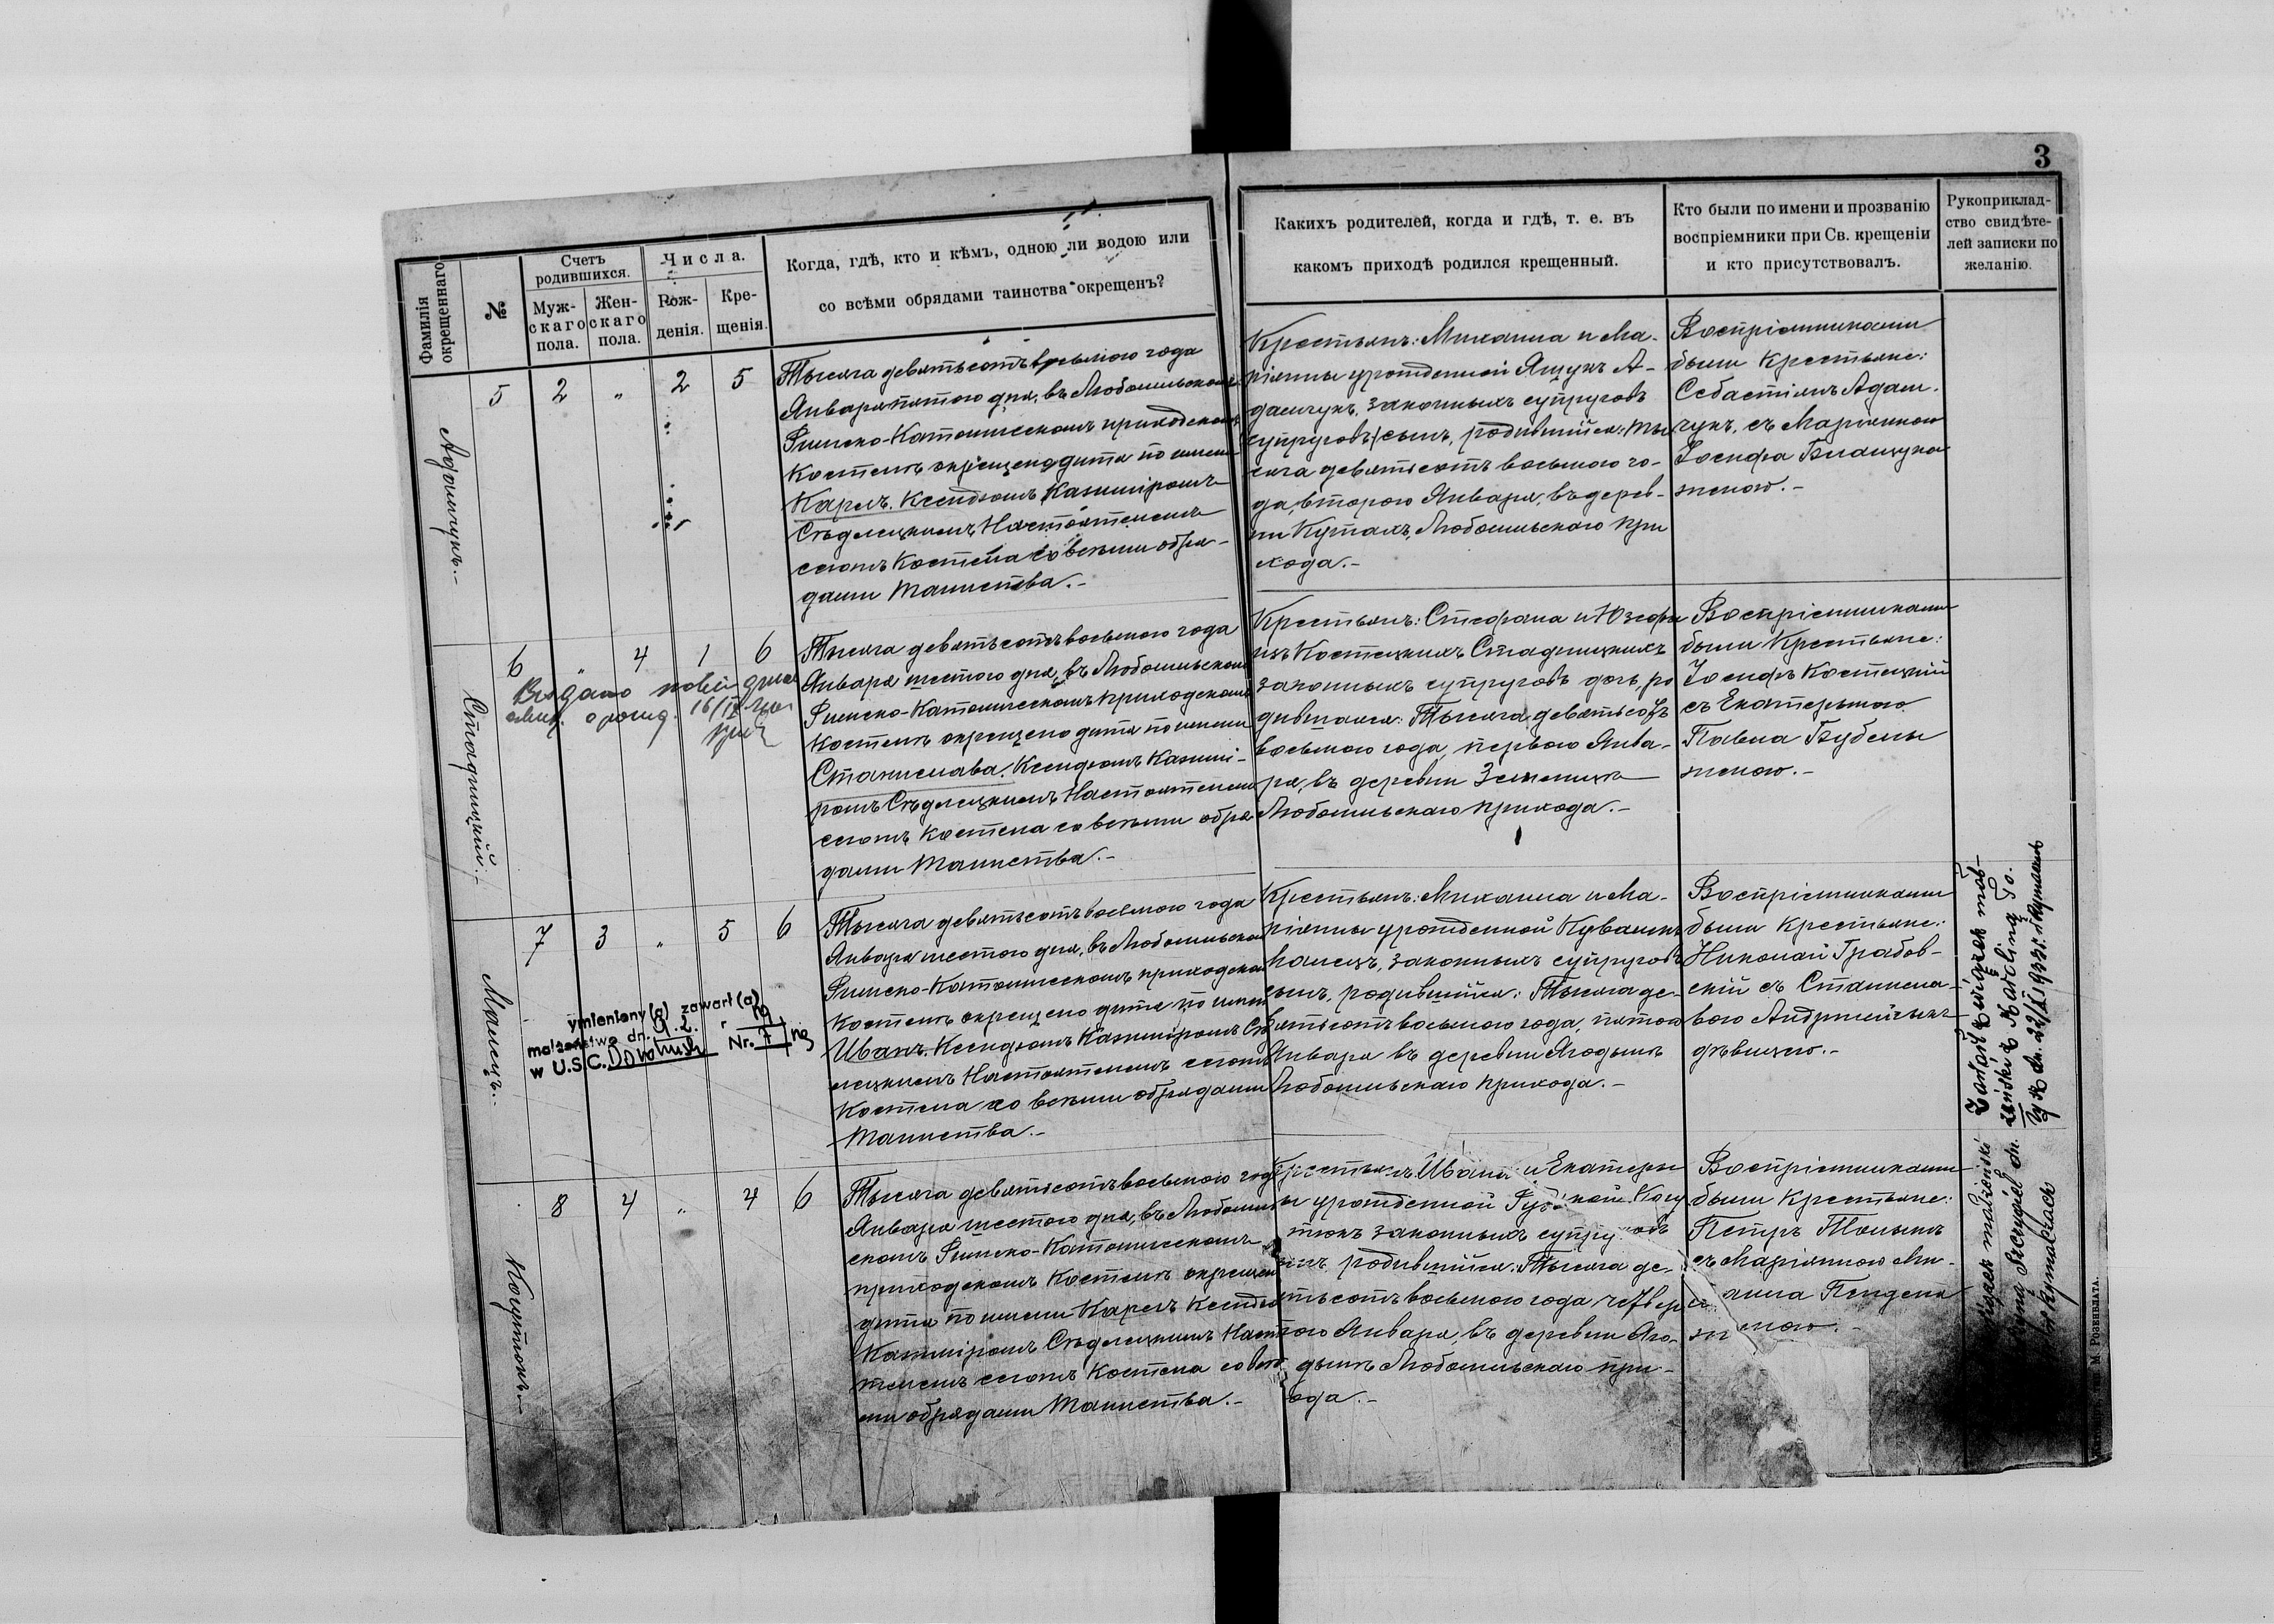 3
Фамилія окрещеннаго
№
Счетъ родившихся.
Муж-скаго пола.
Жен-скаго пола.
Числа.
Рож-денія.
Кре-щенія.
Когда, гдѣ, кто и кѣмъ, одною ли водою или
со всѣми обрядами таинства окрещенъ?
Какихъ родителей, когда и гдѣ, т. е. въ
какомъ приходѣ родился крещенный.
Кто были по имени и прозванію
воспріемники при Св. крещеніи
и кто присутствовалъ.
Рукоприклад-
ство свидѣте-
лей записки по
желанію.
Адамчукъ.-
5 2 " 2 5
Тысяча девятьсотъ восьмого года
Января пятого дня, въ Любомльскомъ
Римско-Католическомъ приходскомъ
Костелѣ окрещено дитя по имени
Карлъ. Ксендзомъ Казиміромъ
Сѣдлецкимъ Настоятелемъ
сегожъ Костела со всѣми обря-
дами Таинства.-
Крестьянъ: Михаила и Ма-
ріянны урожденной Ящукъ А-
дамчукъ, законныхъ супруговъ
супруговъ/ сынъ, родившійся: Ты
сяча девятьсотъ восьмого го-
да, второго Января, въ дерев-
ни Кутахъ, Любомльскаго при
хода.-
Воспріемниками
были Крестьяне:
Себастіянъ Адам-
чукъ, съ Маріянною
Іосифа
женою.-
Стадницкій.-
6 " 4 1 6
Тысяча девятьсотъ восьмого года
Января шестого дня, въ Любомльскомъ
Римско-Католическомъ приходскомъ
Костелѣ окрещено дитя по имени
Станислава. Ксендзомъ Казимі-
ромъ Сѣдлецкимъ Настоятелемъ
сегожъ Костела со всѣми обря
дами Таинства.-
Крестьянъ: Стефана и Юзефы
изъ Костецкихъ Стадницкихъ
законныхъ супруговъ дочь, ро
дившаяся: Тысяча девятьсотъ
восьмого года, первого Янва-
ря, въ деревни
Любомльскаго прихода.-
Воспріемниками
были Крестьяне:
Іосифъ Костецкій
съ Екатериною
Павла Бубелы
женою.-
16/IX
Малецъ.-
7 3 " 5 6
ymieniony(a) zawarł(a)
małżeństwo dn. r
w U.S.C. Nr.
Тысяча девятьсотъ восьмого года
Января шестого дня, въ Любомльском
Римско-Католическомъ приходском
Костелѣ окрещено дитя по имени
Иванъ. Ксендзомъ Казиміромъ Сѣд
лецкимъ Настоятелемъ сегожъ
Костела со всѣми обрядами
Таинства.-
Крестьянъ: Михаила и Ма-
ріянны урожденной
Малецъ, законныхъ супруговъ
сынъ, родившійся: Тысяча де-
вятьсотъ восьмого года, пятого
Января въ деревни Ягодынѣ
Любомльскаго прихода.-
Воспріемниками
были Крестьяне:
Николай Грабов-
скій съ Станисла-
вою
дѣвицею.-
Zawarł związek mał-
żeński z Karliną
dn. 22/XI 1933 r. w Rymaczach
8 4 " 4 6
Тысяча девятьсотъ восьмого года
Января шестого дня, въ Любомль
скомъ Римско-Католическомъ
приходскомъ Костелѣ окрещено
дитя по имени Карлъ Ксендзо
Казиміромъ Сѣдлецкимъ Насто
телемъ сегожъ Костела со всѣ
ми обрядами Таинства.-
Крестьянъ Ивана и Екатери
ы урожденной
законныхъ супруговъ
сынъ, родившійся: Тысяча де-
вятьсотъ восьмого года четвер
того Января, въ деревни Яго-
дынѣ Любомльскаго при-
хода.-
Воспріемниками
были Крестьяне:
Петръ
съ Маріянною
женою.-
małżeński
dn.
w Rymaczach
М Розенблата.